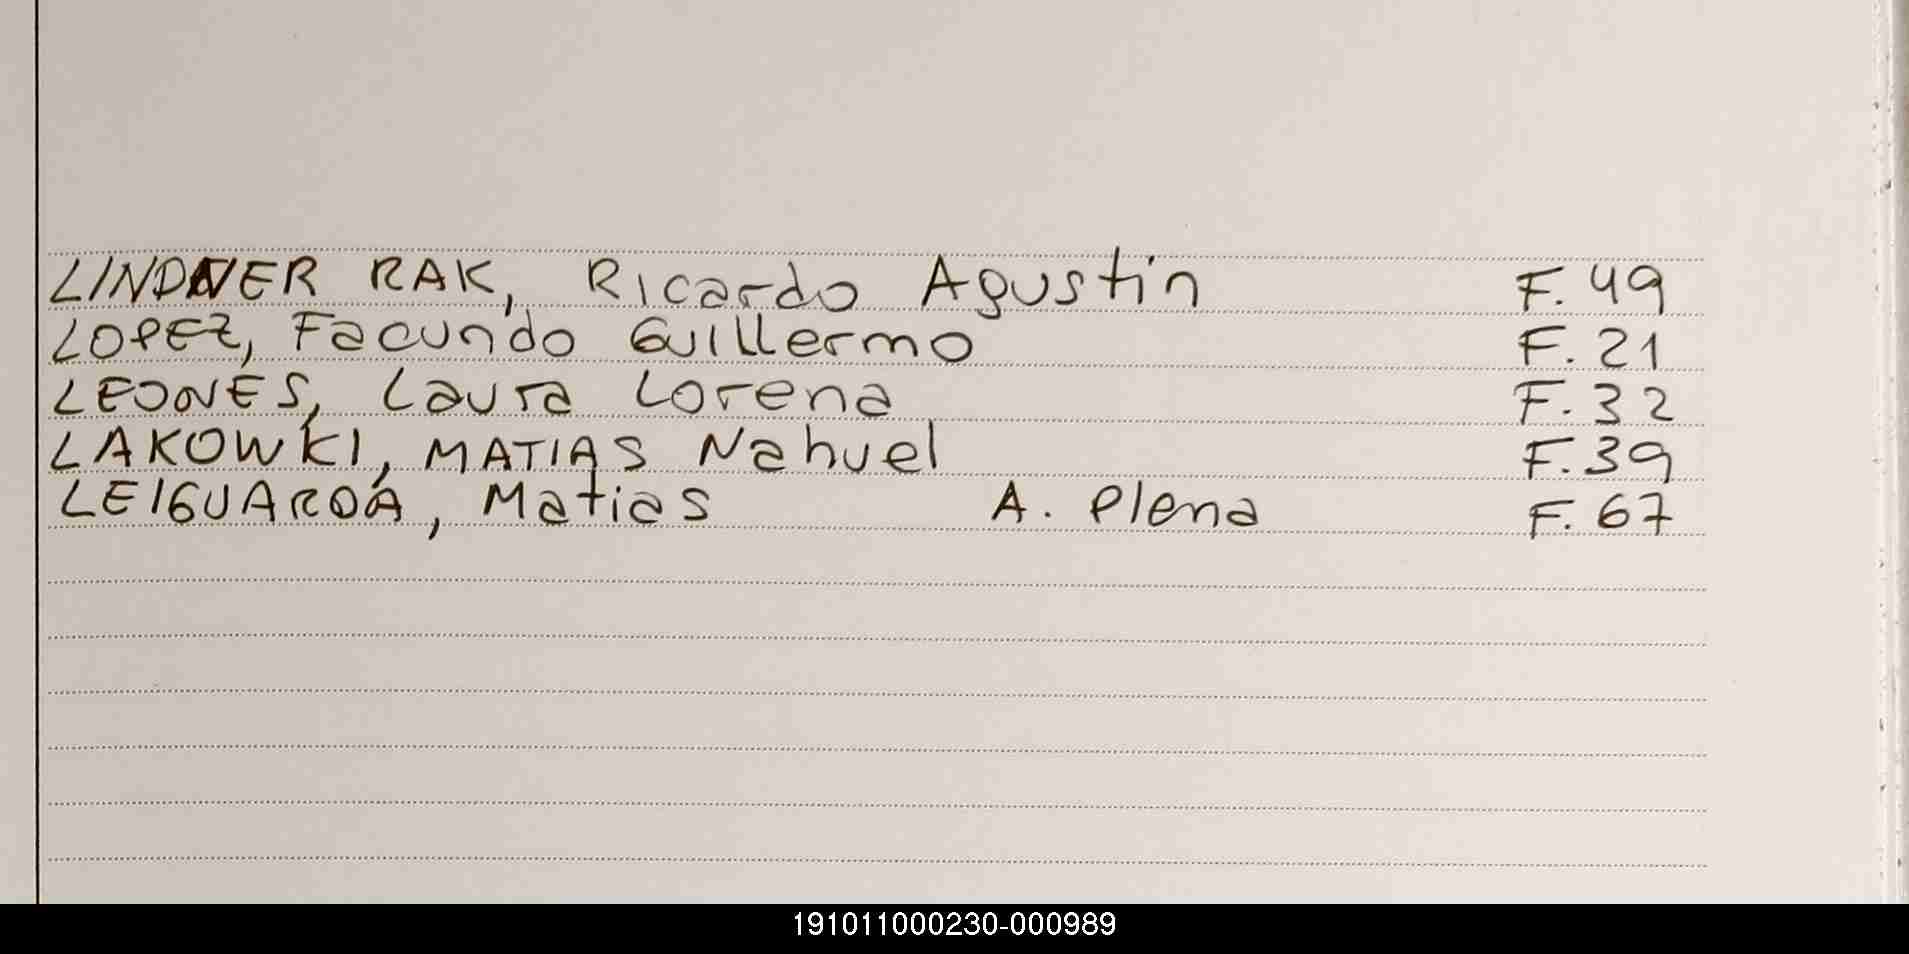 LINDNER RAK, Ricardo Agustin F. 49
LOPEZ, Facundo Guillermo F. 21
LEONES, Laura Lorena F. 32
LAKOWKI, MATIAS Nahuel F. 39
LEIGUARDA, Matias A. Plena F. 67
191011000230-000989